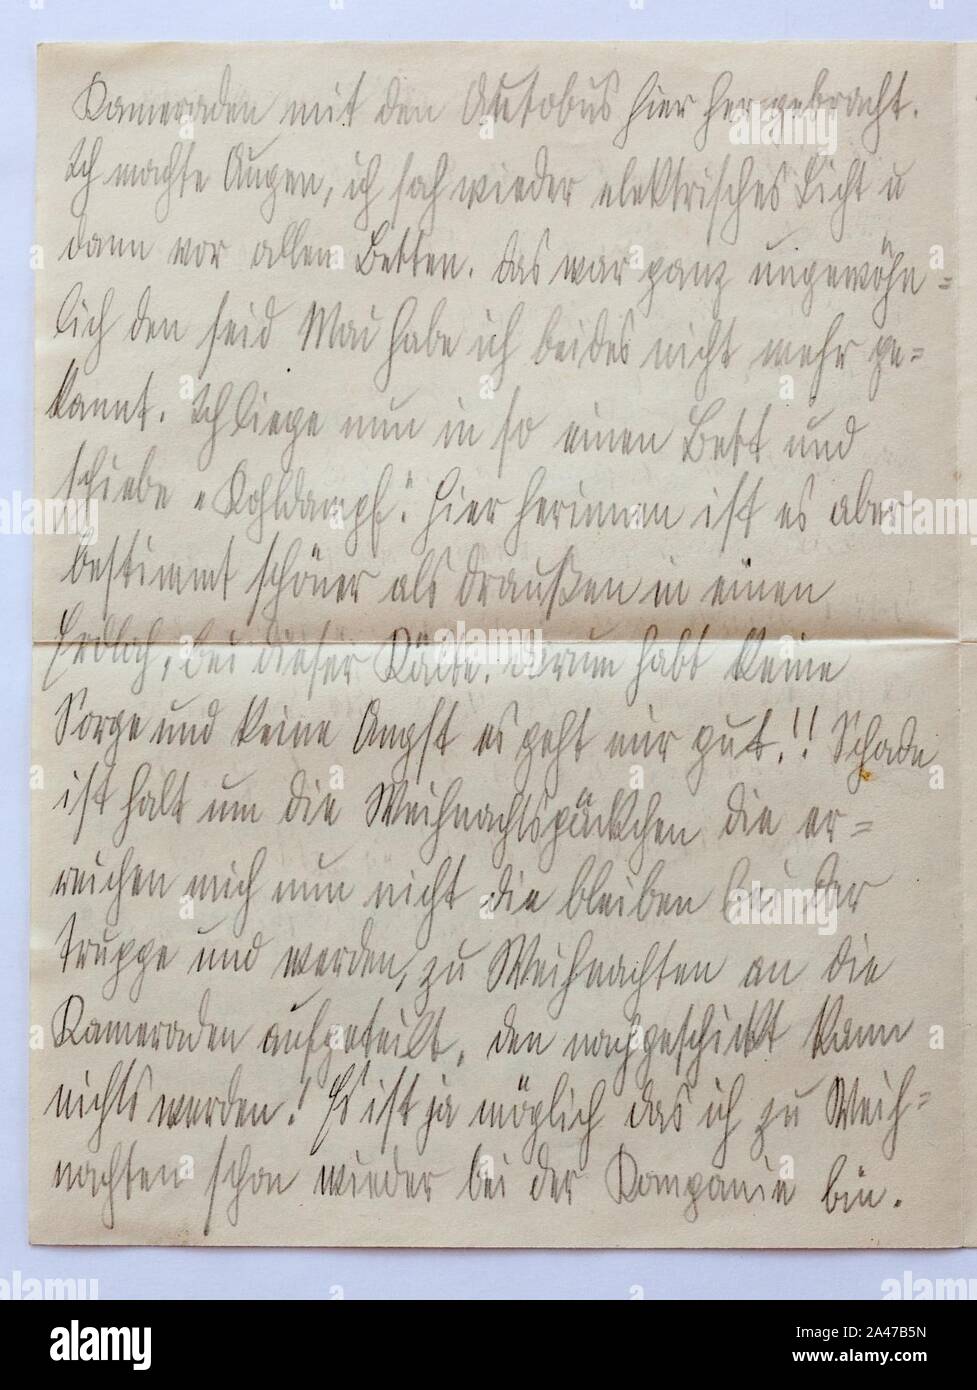 Kameraden mit den Autobus hier her gebracht.
Ich machte Augen, ich sah wieder elektrisches Licht u
dann vor allen Betten. Das war ganz ungewöhn=
lich den seid Mai habe ich beides nicht mehr ge=
kannt. Ich liege nun in so einen Bett und
schiebe „Kohldampf". Hier herinnen ist es aber
bestimmt schöner als draußen in einen
Erdloch, bei dieser Kälte. Darum habt keine
Sorge und keine Angst es geht mir gut!!! Schade
ist halt um die Weihnachtspäckchen die er=
reichen mich nun nicht die bleiben bei der
Truppe und werden, zu Weihnachten an die
Kameraden aufgeteilt, den nachgeschickt kann
nichts werden! Es ist ja möglich das ich zu Weih=
nachten schon wieder bei der Kompanie bin.
alamy
Image ID: 2A47B5N
www.alamy.com